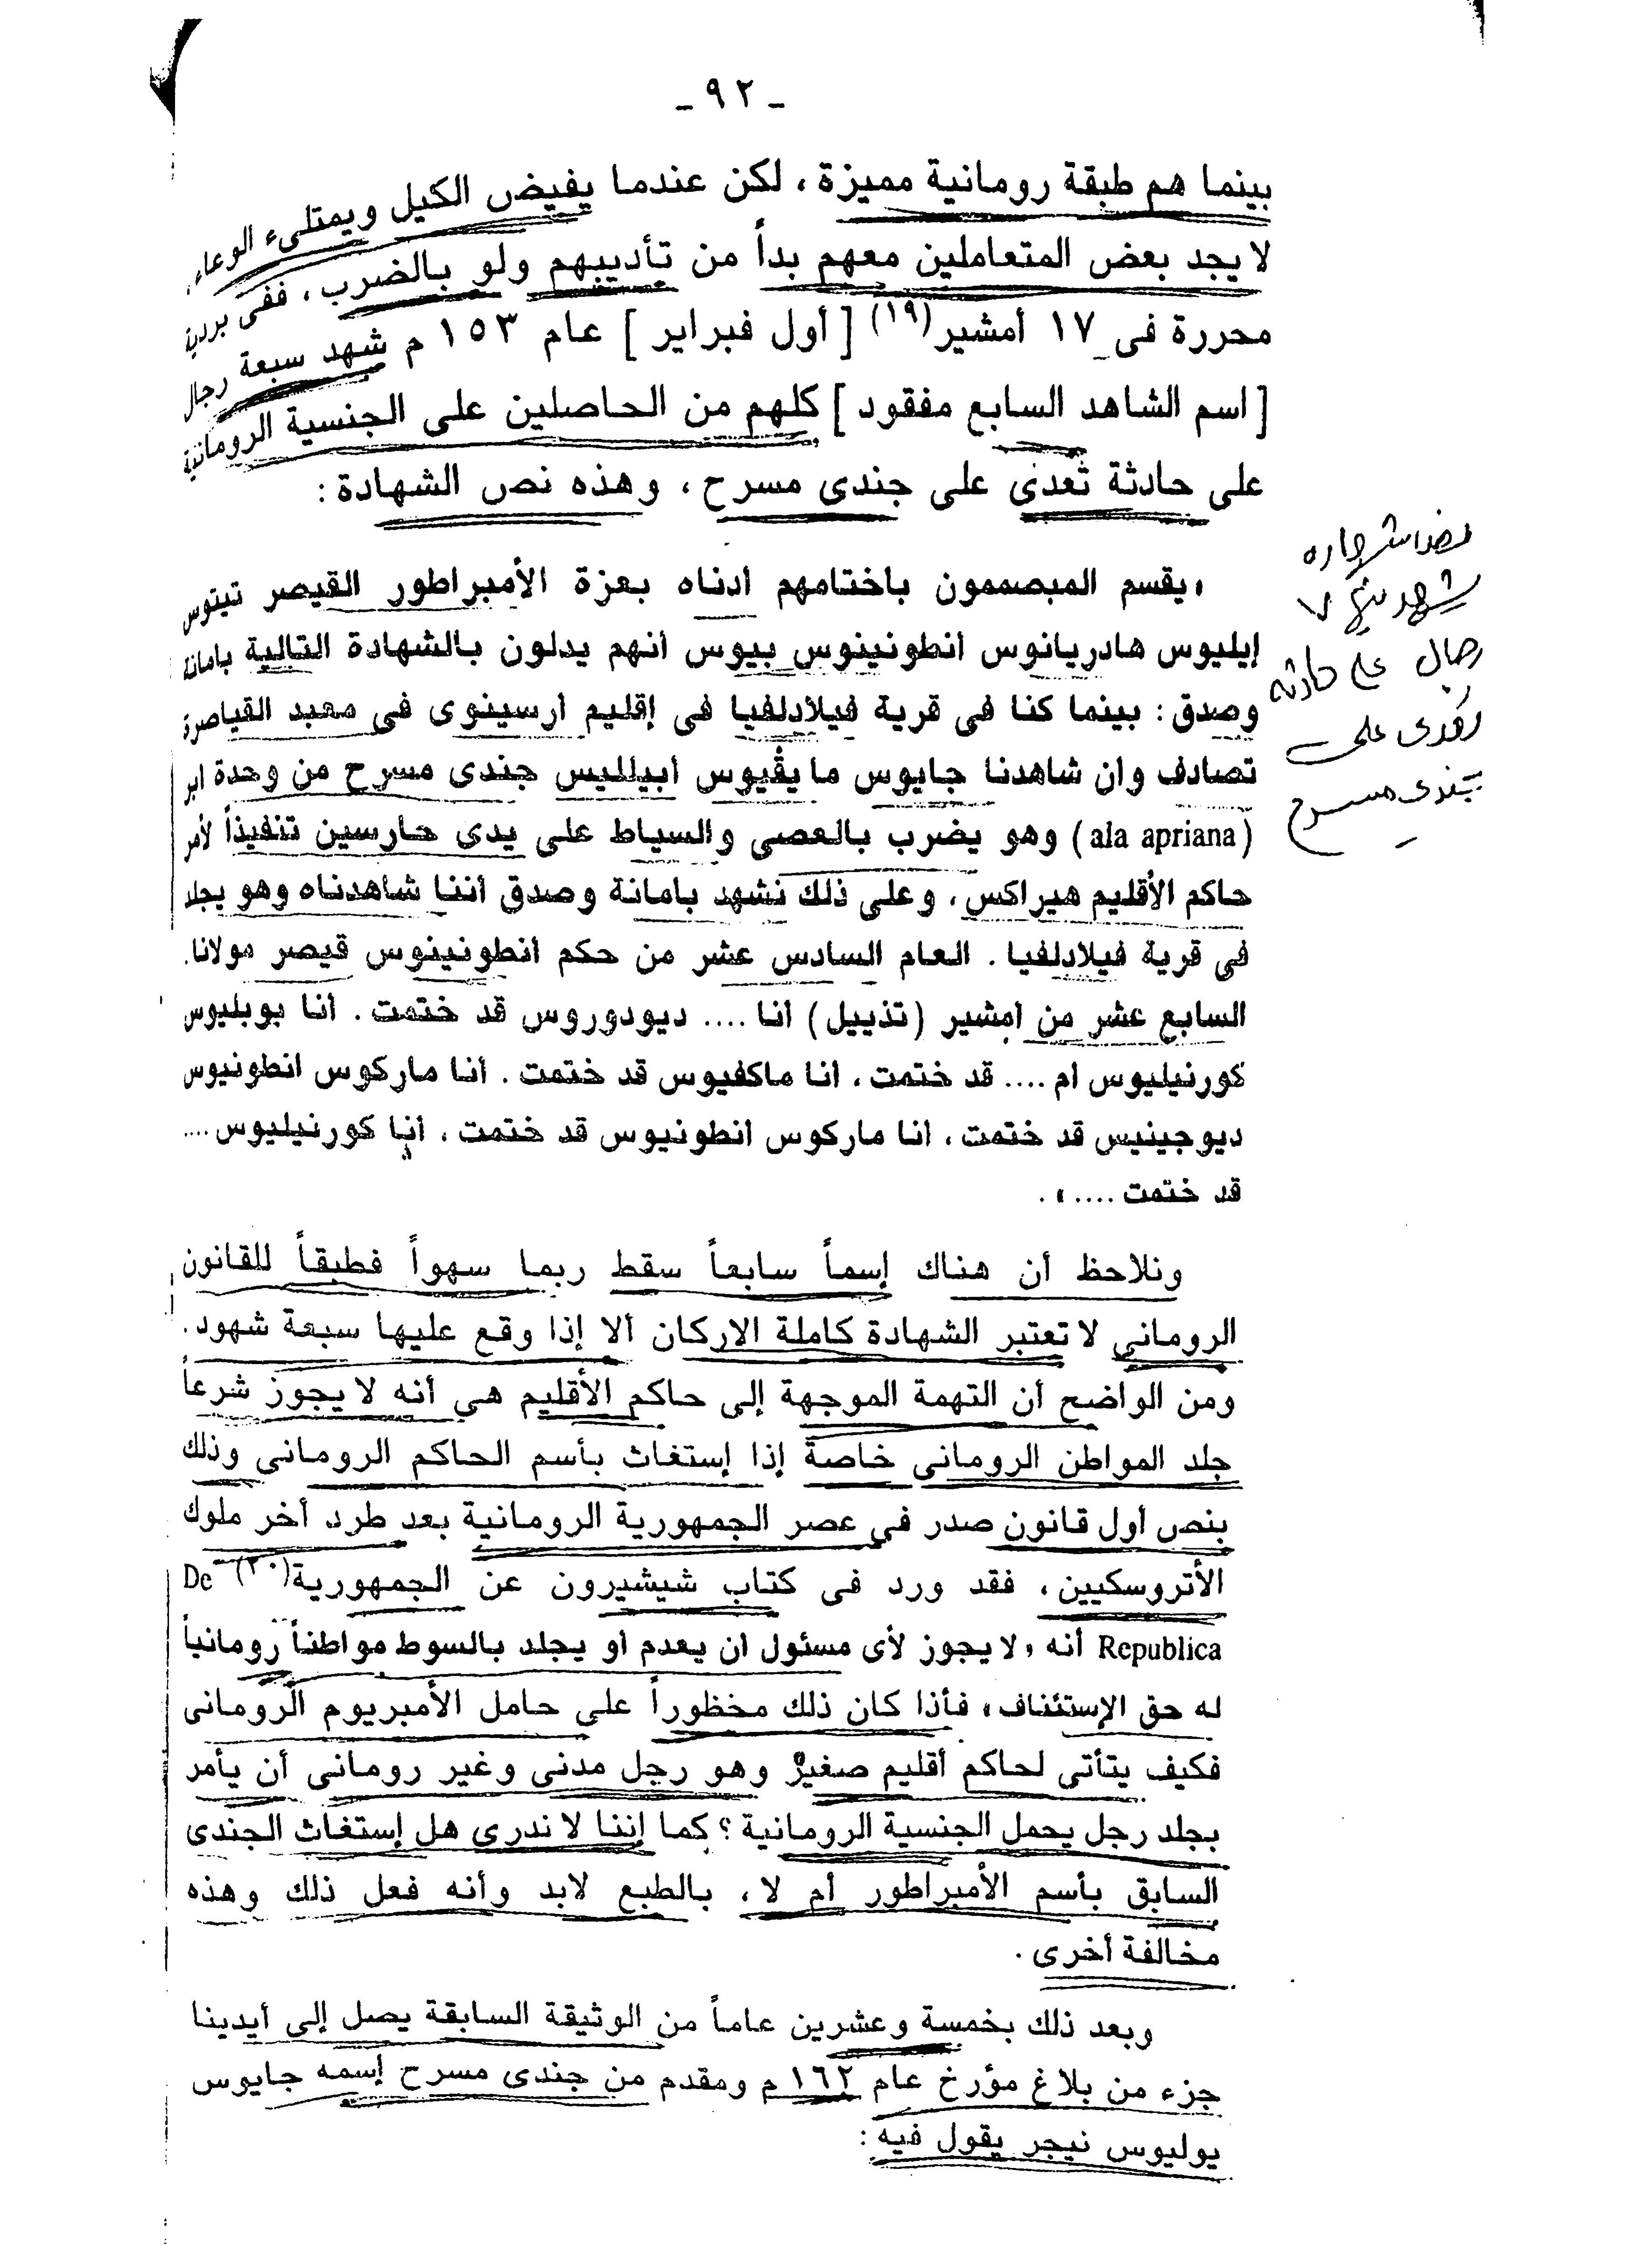 - ٩٢ -
بينما هم طبقة رومانية مميزة ، لكن عندما يفيض الكيل ويمتلىء الوعاء
لا يجد بعض المتعاملين معهم بداً من تأديبهم ولو بالضرب ، ففى بردية
محررة فى ١٧ أمشير (١٩) [ أول فبراير ] عام ١٥٣ م شهد سبعة رجال
[ اسم الشاهد السابع مفقود ] كلهم من الحاصلين على الجنسية الرومانية
على حادثة تعدى على جندى مسرح ، وهذه نص الشهادة :
نص الشهاده
شهد فيها ٧
رجال على حادثه
تعدى على
جندى مسرح
« يقسم المبصممون باختامهم ادناه بعزة الأمبراطور القيصر تيتوس
إيليوس هادريانوس انطونينوس بيوس أنهم يدلون بالشهادة التالية بامانة
وصدق : بينما كنا فى قرية فيلادلفيا فى إقليم ارسينوى فى معبد القياصرة
تصادف وان شاهدنا جايوس مايڤيوس أبيلليس جندى مسرح من وحدة ابر
(ala apriana) وهو يضرب بالعصى والسياط على يدى حارسين تنفيذاً لأمر
حاكم الأقليم هيراكس ، وعلى ذلك نشهد بامانة وصدق أننا شاهدناه وهو يجلد
فى قرية فيلادلفيا . العام السادس عشر من حكم انطونينوس قيصر مولانا .
السابع عشر من امشير (تذييل) انا .... ديودوروس قد ختمت . أنا بوبليوس
كورنيليوس ام .... قد ختمت ، انا ماكفيوس قد ختمت . أنا ماركوس انطونيوس
ديوجينيس قد ختمت ، انا ماركوس انطونيوس قد ختمت ، أنا كورنيليوس ....
قد ختمت .... » .
ونلاحظ أن هناك إسماً سابعاً سقط ربما سهواً فطبقاً للقانون
الرومانى لا تعتبر الشهادة كاملة الاركان ألا إذا وقع عليها سبعة شهود .
ومن الواضح أن التهمة الموجهة إلى حاكم الأقليم هى أنه لا يجوز شرعاً
جلد المواطن الرومانى خاصة إذا إستغاث بأسم الحاكم الرومانى وذلك
بنص أول قانون صدر فى عصر الجمهورية الرومانية بعد طرد أخر ملوك
الأتروسكيين ، فقد ورد فى كتاب شيشيرون عن الجمهورية (٢٠) De
Republica أنه « لا يجوز لأى مسئول ان يعدم او يجلد بالسوط مواطناً رومانياً
له حق الإستئناف » فأذا كان ذلك مخظوراً على حامل الأمبريوم الرومانى
فكيف يتأتى لحاكم أقليم صغير وهو رجل مدنى وغير رومانى أن يأمر
بجلد رجل يحمل الجنسية الرومانية ؟ كما إننا لا ندرى هل إستغاث الجندى
السابق بأسم الأمبراطور أم لا ، بالطبع لابد وأنه فعل ذلك وهذه
مخالفة أخرى .
وبعد ذلك بخمسة وعشرين عاماً من الوثيقة السابقة يصل إلى أيدينا
جزء من بلاغ مؤرخ عام ١٦٢ م ومقدم من جندى مسرح إسمه جايوس
يوليوس نيجر يقول فيه :